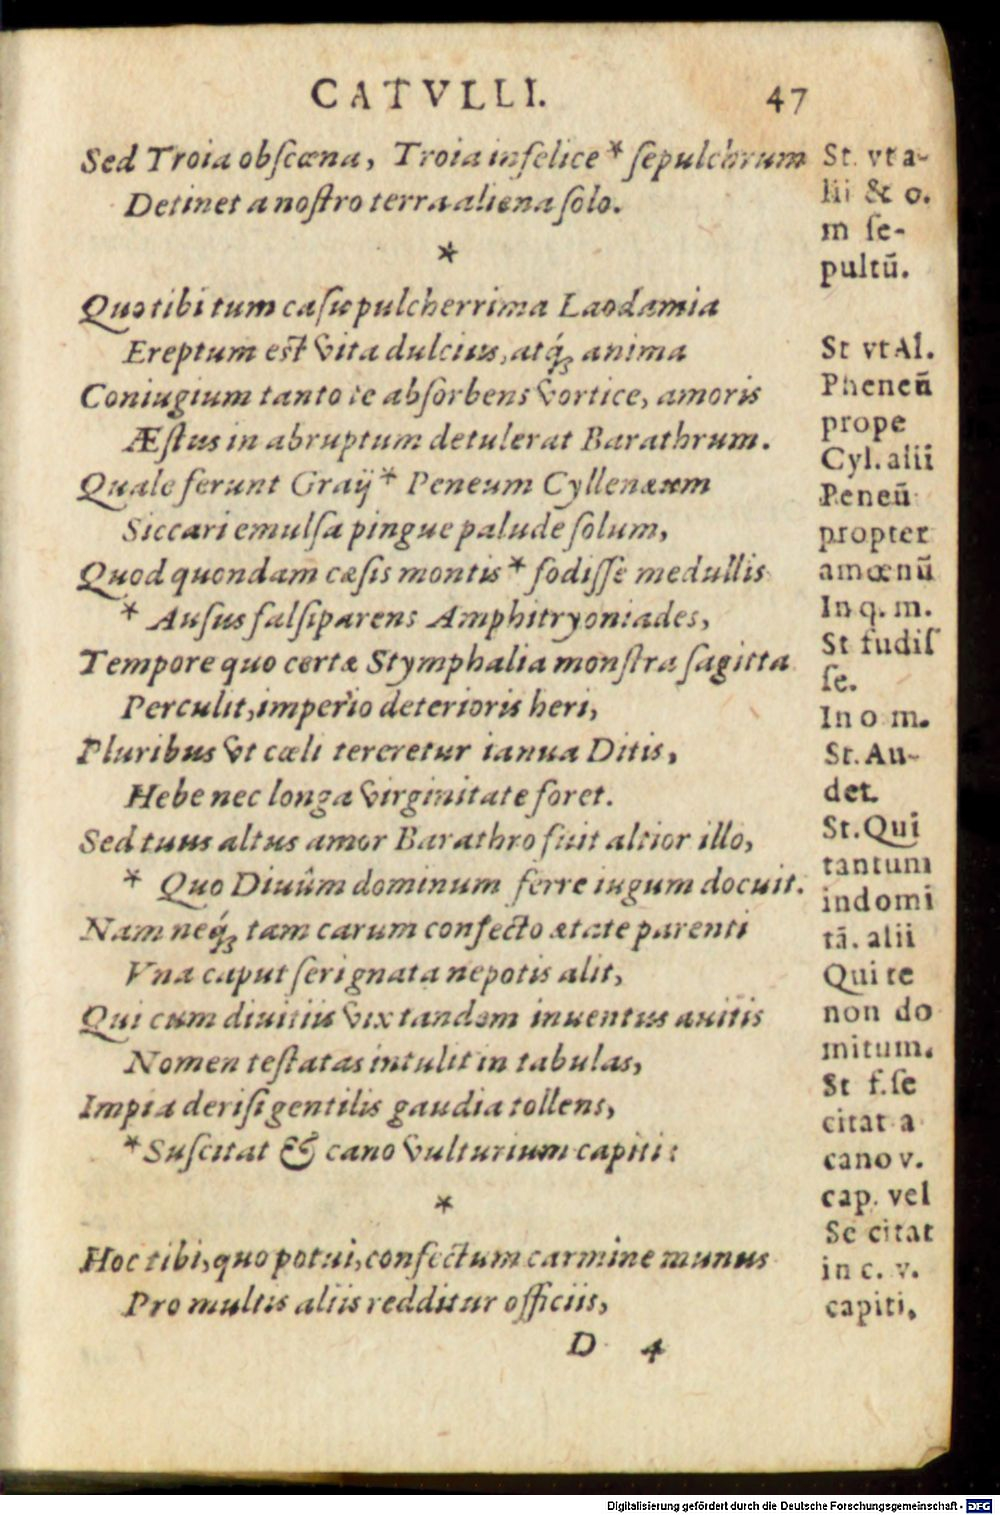 CATVLLI. 47
Sed Troia obscœna, Troia infelice * sepulchrum
Detinet a nostro terra aliena solo.
*
Quo tibi tum casu pulcherrima Laodamia
Ereptum est vita dulcius, atq́; anima
Coniugium tanto te absorbens vortice, amoris
Æstus in abruptum detulerat Barathrum.
Quale ferunt Graij * Peneum Cyllenæum
Siccari emulsa pingue palude solum,
Quod quondam cæsis montis * fodisse medullis
* Ausus falsiparens Amphitryoniades,
Tempore quo certæ Stymphalia monstra sagitta
Perculit, imperio deterioris heri,
Pluribus vt cœli tereretur ianua Ditis,
Hebe nec longa virginitate foret.
Sed tuus altus amor Barathro fuit altior illo,
* Quo Diuûm dominum ferre iugum docuit.
Nam neq́; tam carum confecto ætate parenti
Vna caput seri gnata nepotis alit,
Qui cum diuitiis vix tandem inuentus auitis
Nomen testatas intulit in tabulas,
Impia derisi gentilis gaudia tollens,
* Suscitat & cano vulturium capiti:
*
Hoc tibi, quo potui, confectum carmine munus
Pro multis aliis redditur officiis,
D 4
St. vt a-
lii & o.
m se-
pultū.
St vt Al.
Pheneū
prope
Cyl. alii
Peneū
propter
amœnū
In q. m.
St fudis
se.
In o m.
St. Au-
det.
St. Qui
tantum
indomi
tā. alii
Qui te
non do
mitum.
St f. se
citat a
cano v.
cap. vel
Se citat
in c. v.
capiti,
Digitalisierung gefördert durch die Deutsche Forschungsgemeinschaft - DFG